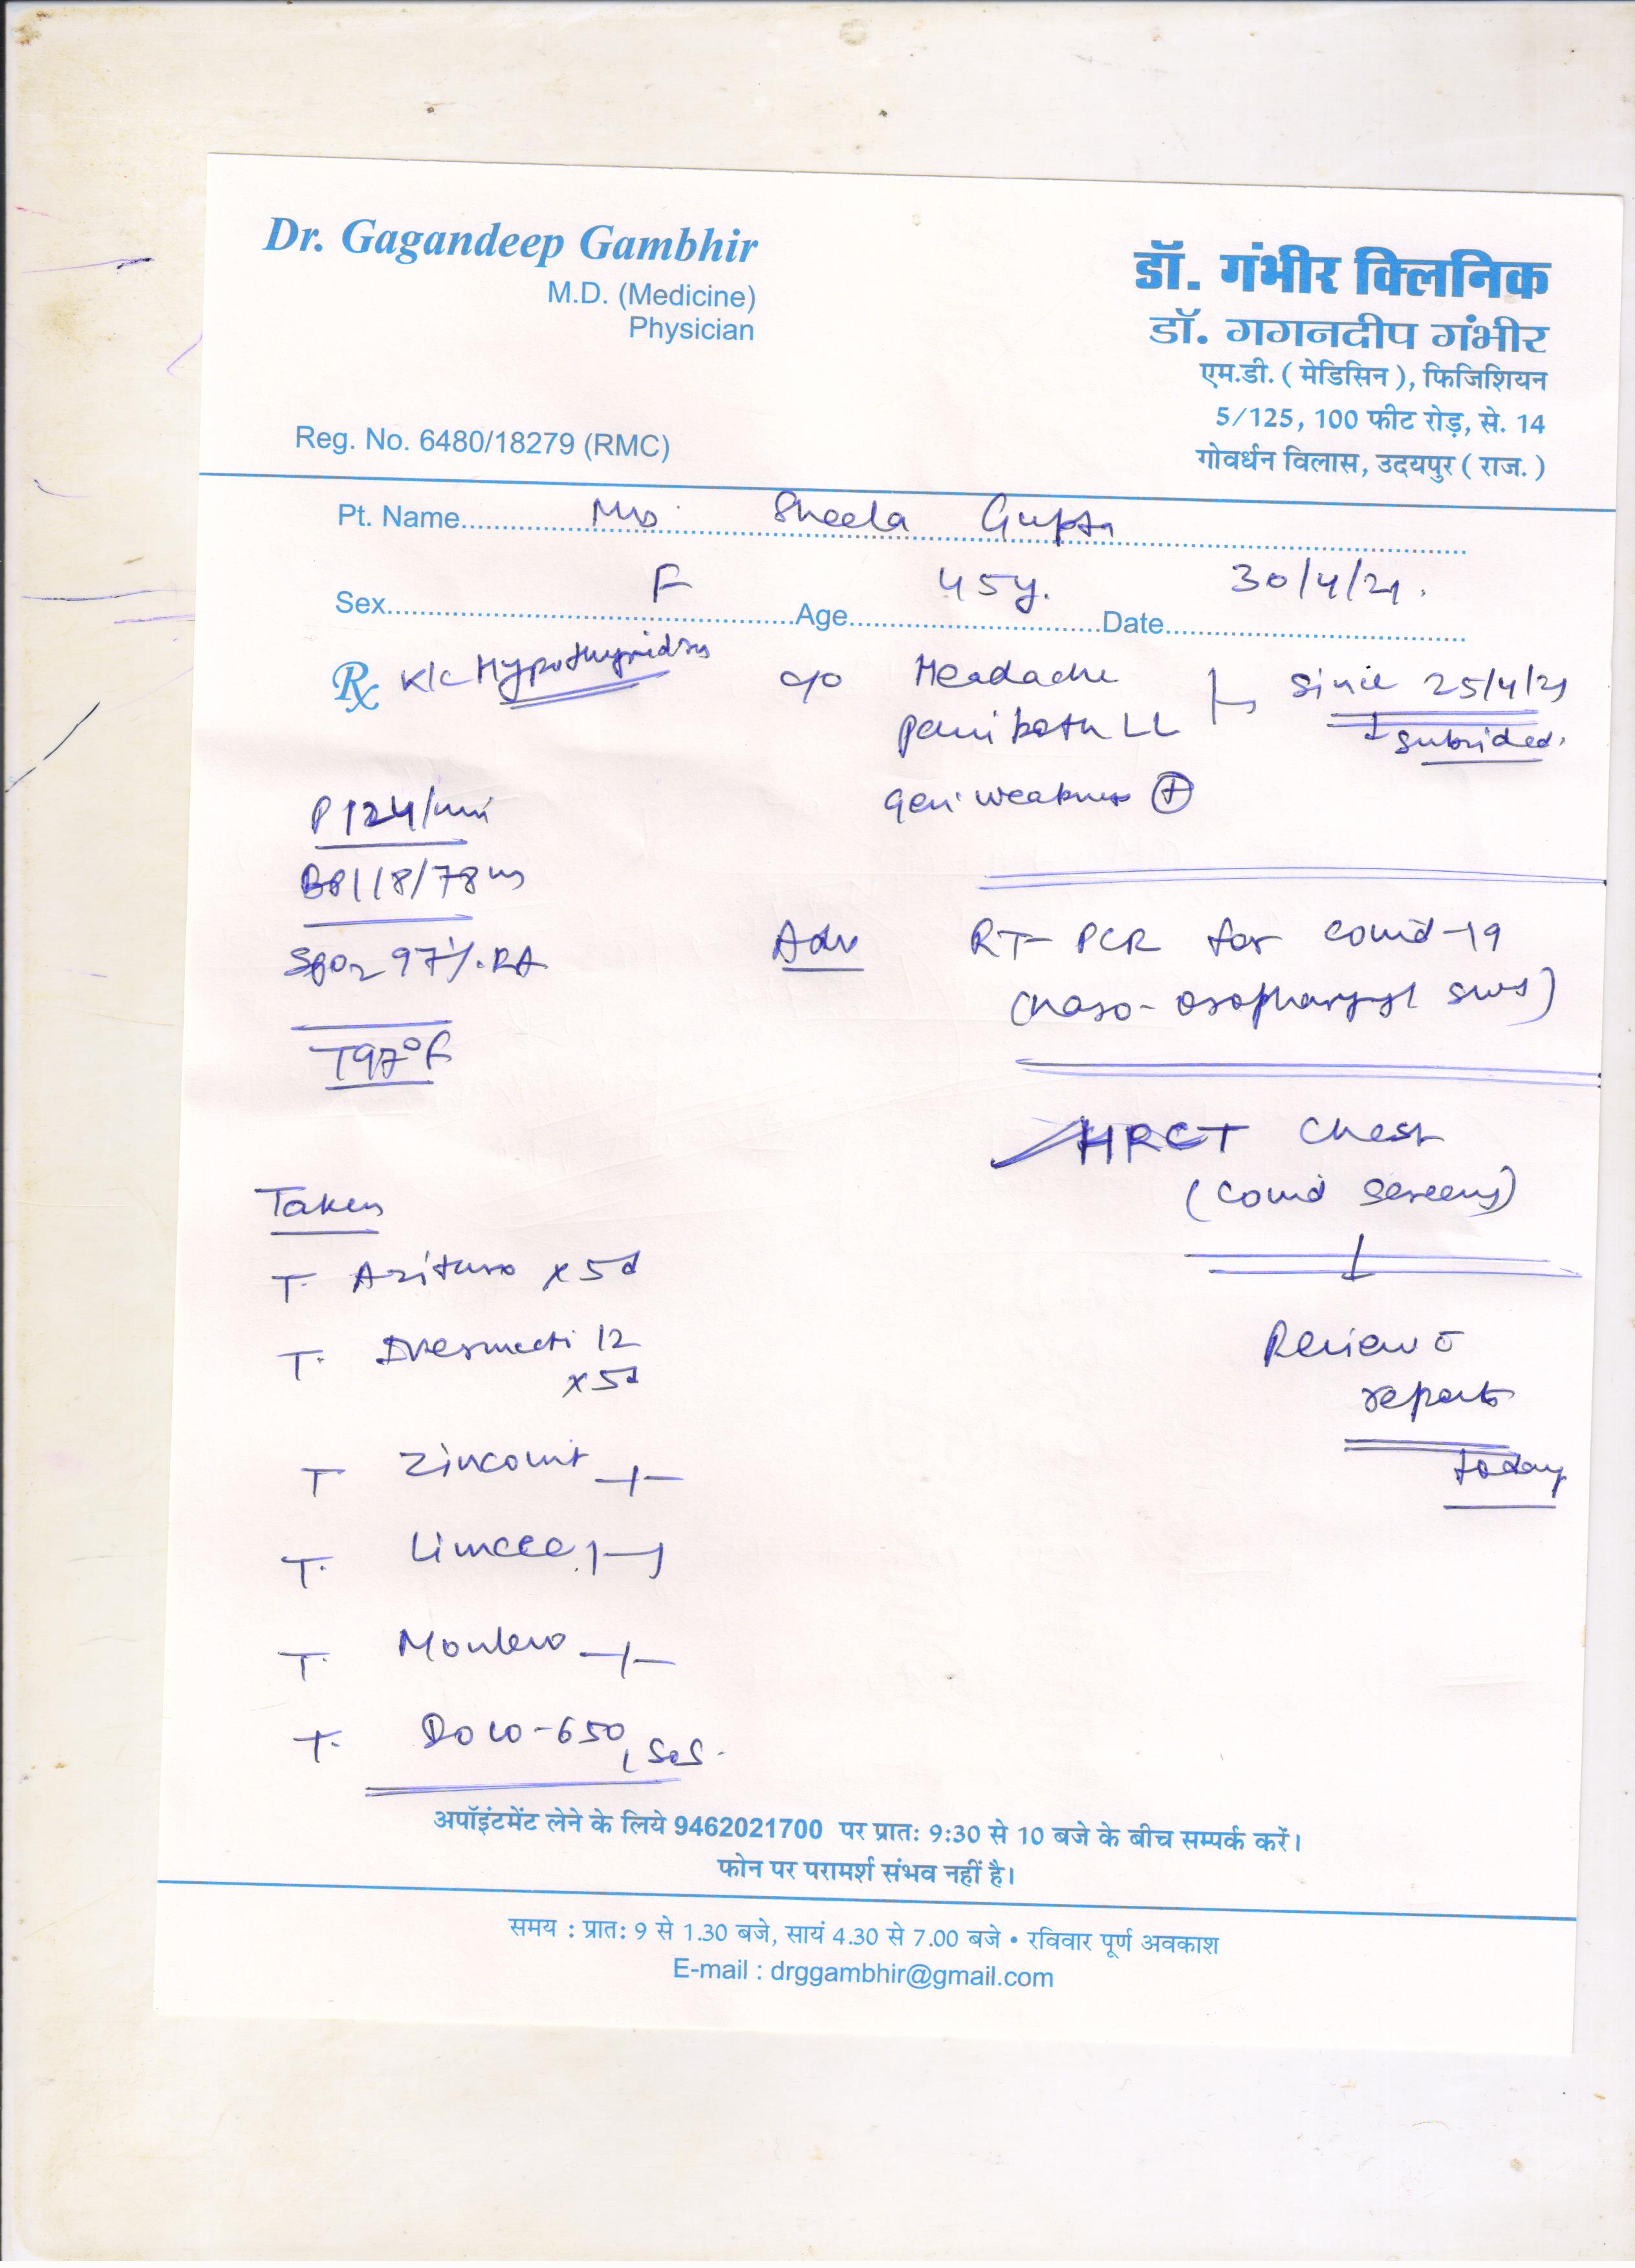 Dr. Gagandeep Gambhir
M.D. (Medicine)
Physician
Reg. No. 6480/18279 (RMC)
डॉ. गंभीर क्लिनिक
डॉ. गगनदीप गंभीर
एम.डी. ( मेडिसिन ), फिजिशियन
5/125, 100 फीट रोड़, से. 14
गोवर्धन विलास, उदयपुर ( राज. )
Pt. Name Mrs. Sheela Gupta
Sex F Age 45y. Date 30/4/21.
Rx K/c Hypothyroidism c/o Headache since 25/4/21
pain both LL subsided.
gen weakness +
P 124/min
BP 118/78
SpO2 97%. RA
T 97°F
Adv RT-PCR for Covid-19
(naso-
HRCT Chest
(Covid
Review
reports
today
Taken
T. x 5d
T. 12
x 5d
T Zincovit
T. Limcee 1-1
T.
T. Dolo-650, SOS.
अपॉइंटमेंट लेने के लिये 9462021700 पर प्रातः 9:30 से 10 बजे के बीच सम्पर्क करें।
फोन पर परामर्श संभव नहीं है।
समय : प्रातः 9 से 1.30 बजे, सायं 4.30 से 7.00 बजे • रविवार पूर्ण अवकाश
E-mail : drggambhir@gmail.com